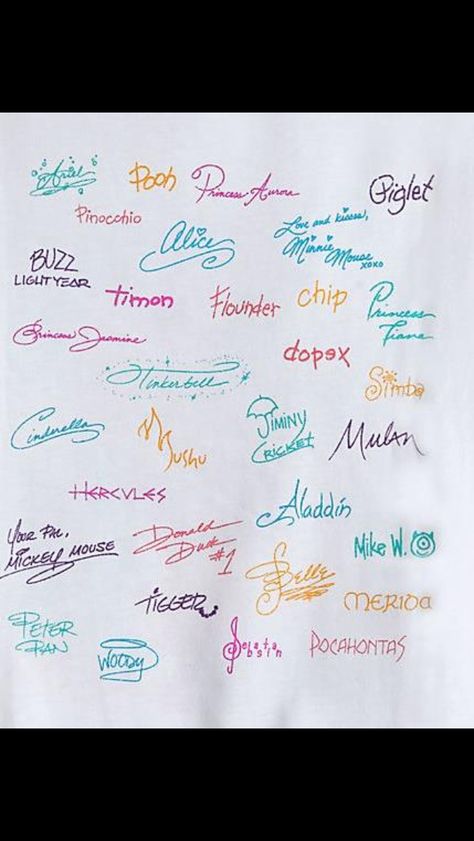 Ariel
Pooh
Princess Aurora
Piglet
Pinocchio
Alice
Love and kisses,
Minnie
Mouse
xoxo
BUZZ
LIGHTYEAR
Timon
Flounder
chip
Princess
Tiana
Princess Jasmine
dopey
Tinkerbell
Simba
Cinderella
Mushu
JIMINY
CRICKET
MULAN
HERCULES
Aladdin
YOUR PAL,
MICKEY MOUSE
Donald
Duck
#1
Mike W.
Belle
TIGGER
MERIDA
PETER
PAN
WOODY
Sebastian
POCAHONTAS